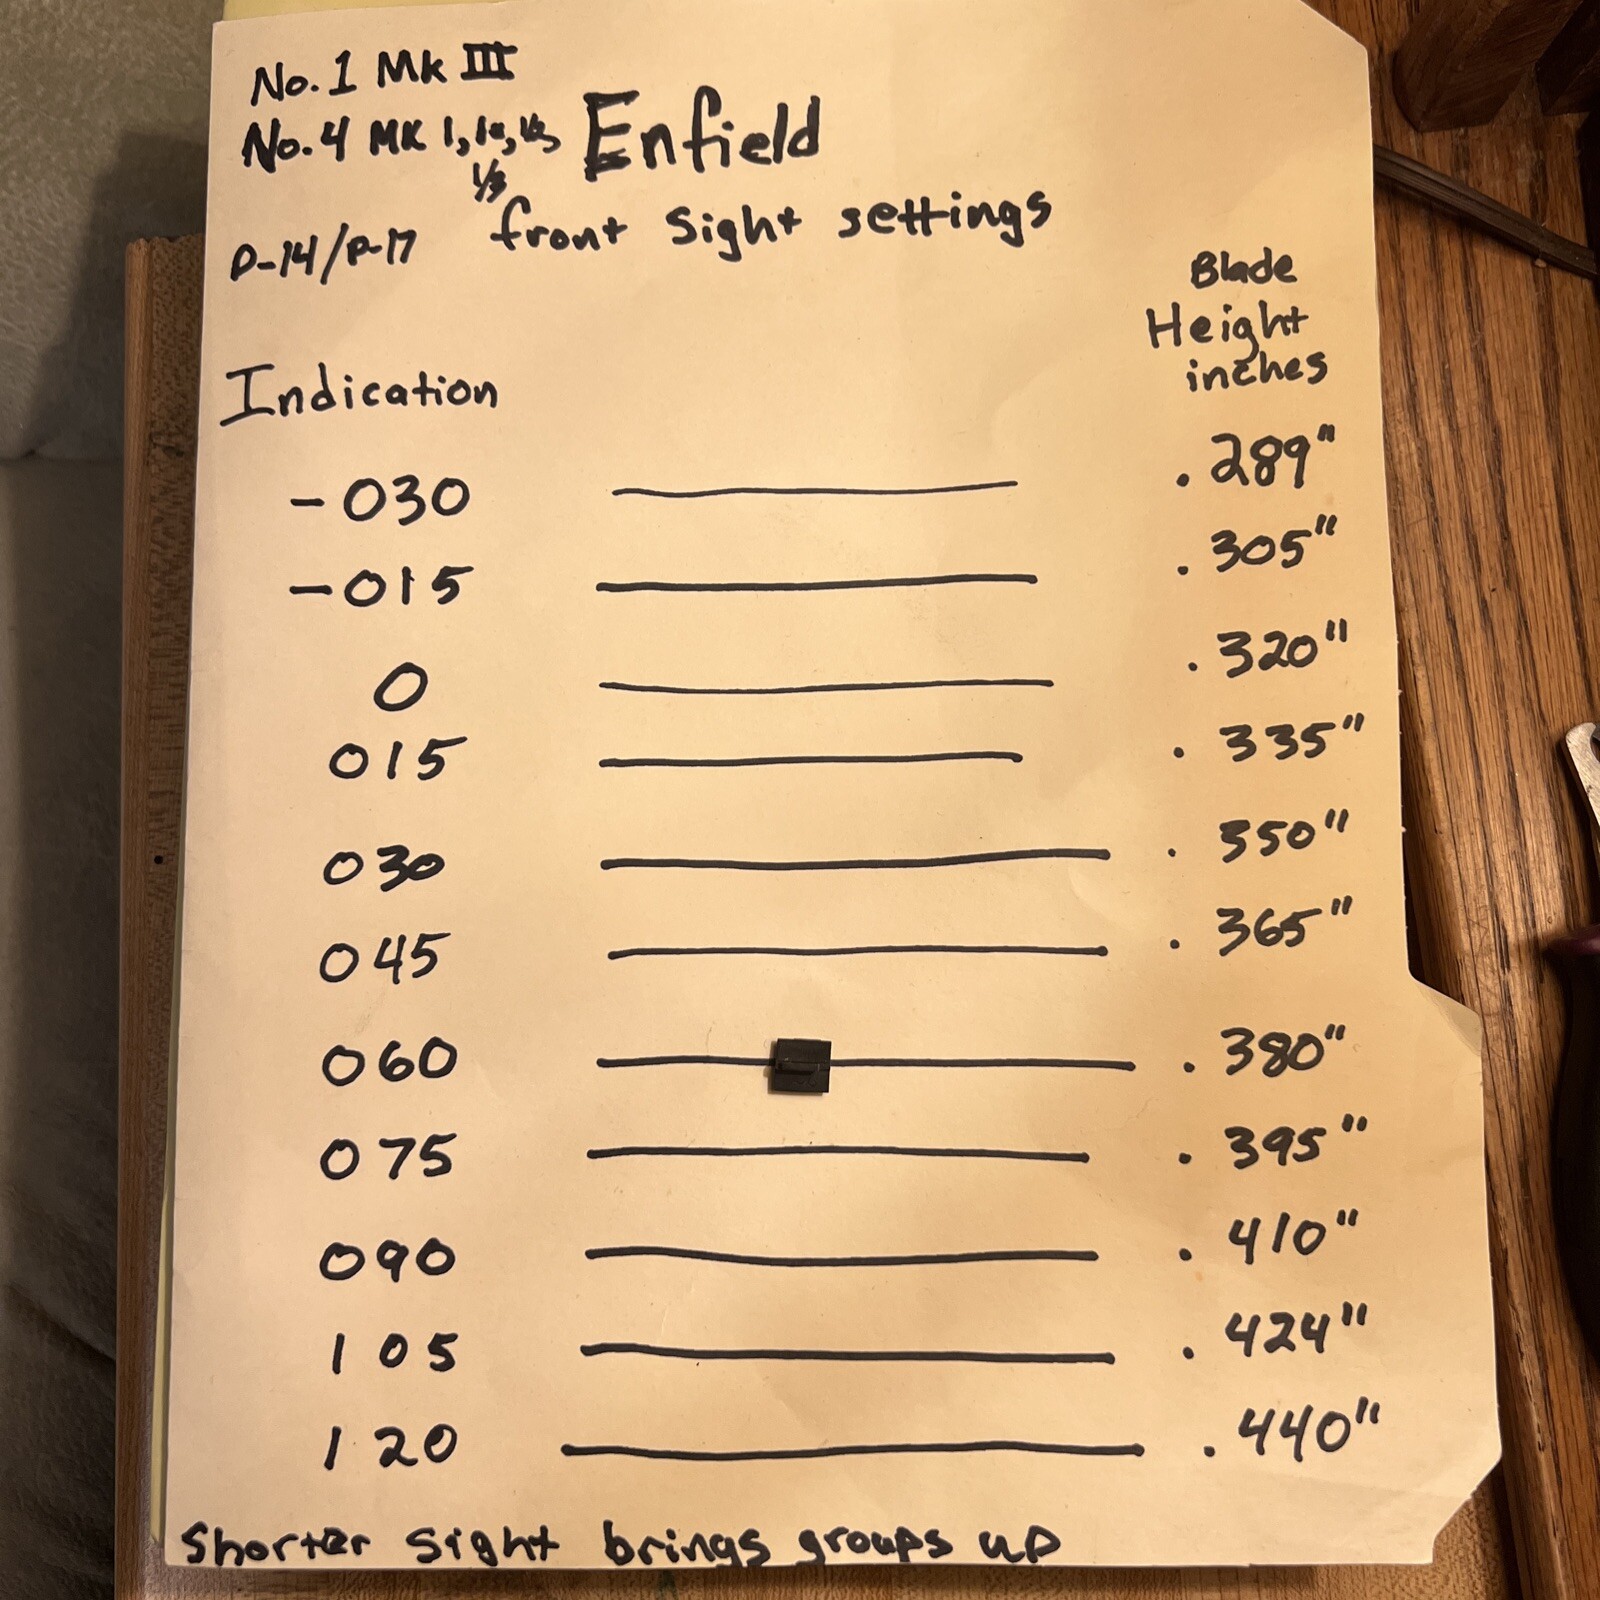 No.1 Mk III
No.4 MK 1, 1*, 1/2, 1/3
Enfield
front Sight settings
P-14/P-17
Blade
Height
inches
Indication
-030 .289"
-015 .305"
0 .320"
015 .335"
030 .350"
045 .365"
060 .380"
075 .395"
090 .410"
105 .424"
120 .440"
Shorter Sight brings groups up